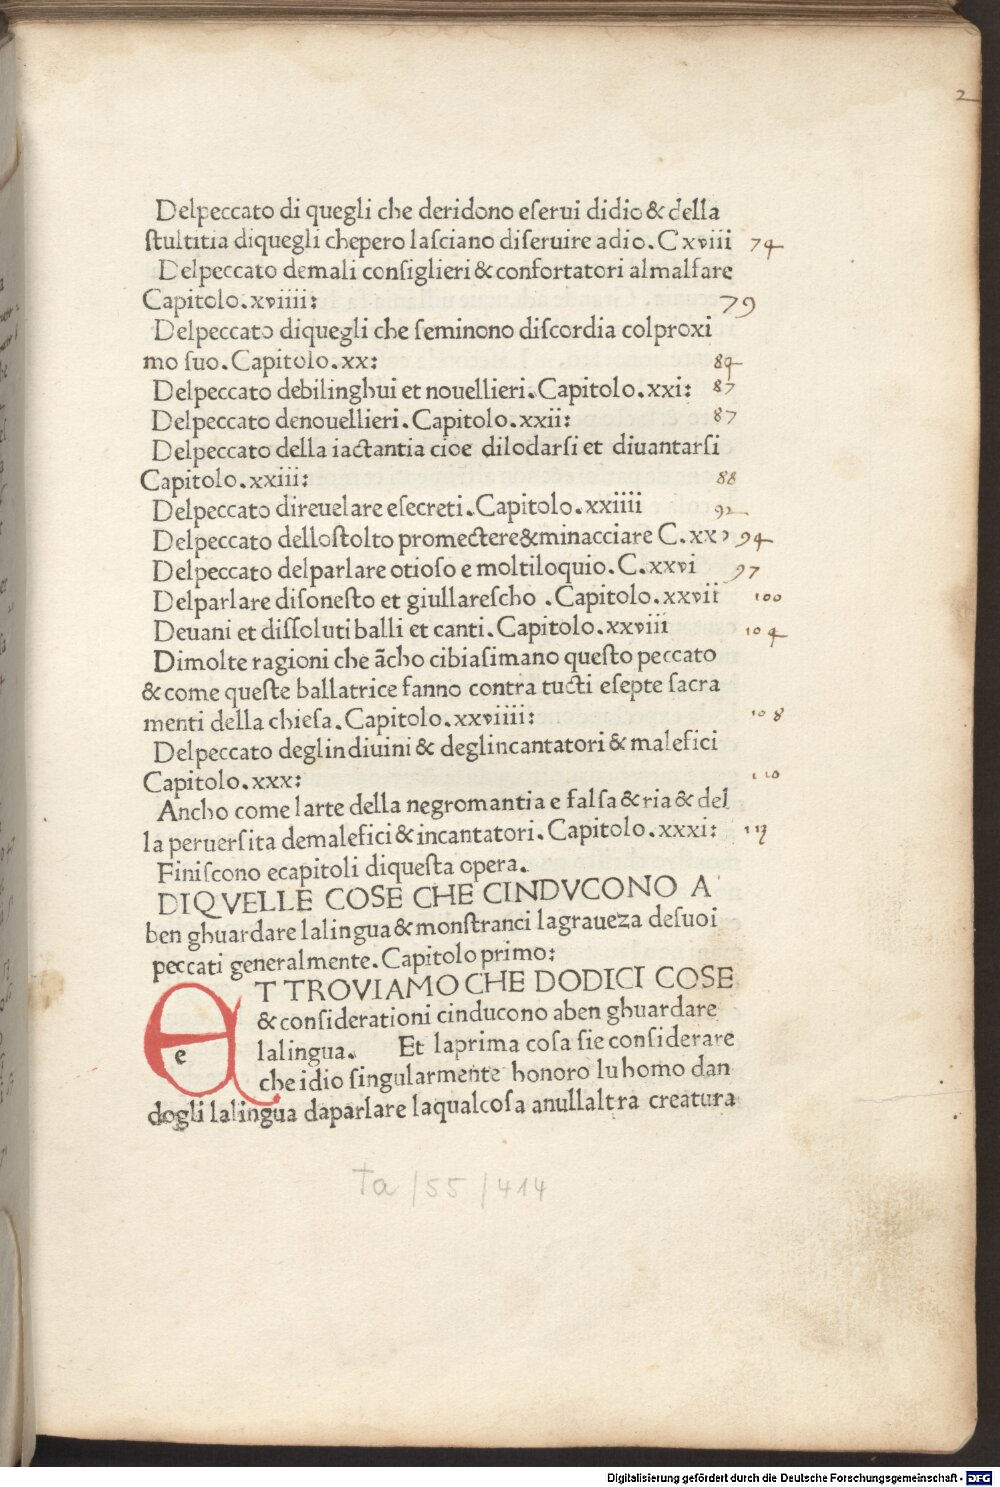 2
Delpeccato di quegli che deridono eſerui didio & della
ſtultitia diquegli chepero laſciano diſeruire adio. C xviii 74
Delpeccato demali conſiglieri & confortatori almalfare
Capitolo. xviiii: 79
Delpeccato diquegli che ſeminono diſcordia colproxi
mo ſuo. Capitolo. xx: 84
Delpeccato debilinghui et nouellieri. Capitolo. xxi: 87
Delpeccato denouellieri. Capitolo. xxii: 87
Delpeccato della iactantia cioe dilodarſi et diuantarſi
Capitolo. xxiii: 88
Delpeccato direuelare eſecreti. Capitolo. xxiiii 92
Delpeccato delloſtolto promectere & minacciare C. xxv 94
Delpeccato delparlare otioſo e moltiloquio. C. xxvi 97
Delparlare diſoneſto et giullareſcho . Capitolo. xxvii 100
Deuani et diſſoluti balli et canti. Capitolo. xxviii 104
Dimolte ragioni che ācho cibiaſimano queſto peccato
& come queſte ballatrice fanno contra tucti eſepte ſacra
menti della chieſa. Capitolo. xxviiii: 108
Delpeccato deglindiuini & deglincantatori & malefici
Capitolo. xxx: 110
Ancho come larte della negromantia e falſa & ria & del
la peruerſita demalefici & incantatori. Capitolo. xxxi: 113
Finiſcono ecapitoli diqueſta opera.
DIQVELLE COSE CHE CINDVCONO A
ben ghuardare lalingua & monſtranci lagraueza deſuoi
peccati generalmente. Capitolo primo:
E e T TROVIAMO CHE DODICI COSE
& conſiderationi cinducono aben ghuardare
lalingua. Et laprima coſa ſie conſiderare
che idio ſingularmente honoro luhomo dan
dogli lalingua daparlare laqualcoſa anullaltra creatura
Ta / 55 / 414
Digitalisierung gefördert durch die Deutsche Forschungsgemeinschaft - DFG